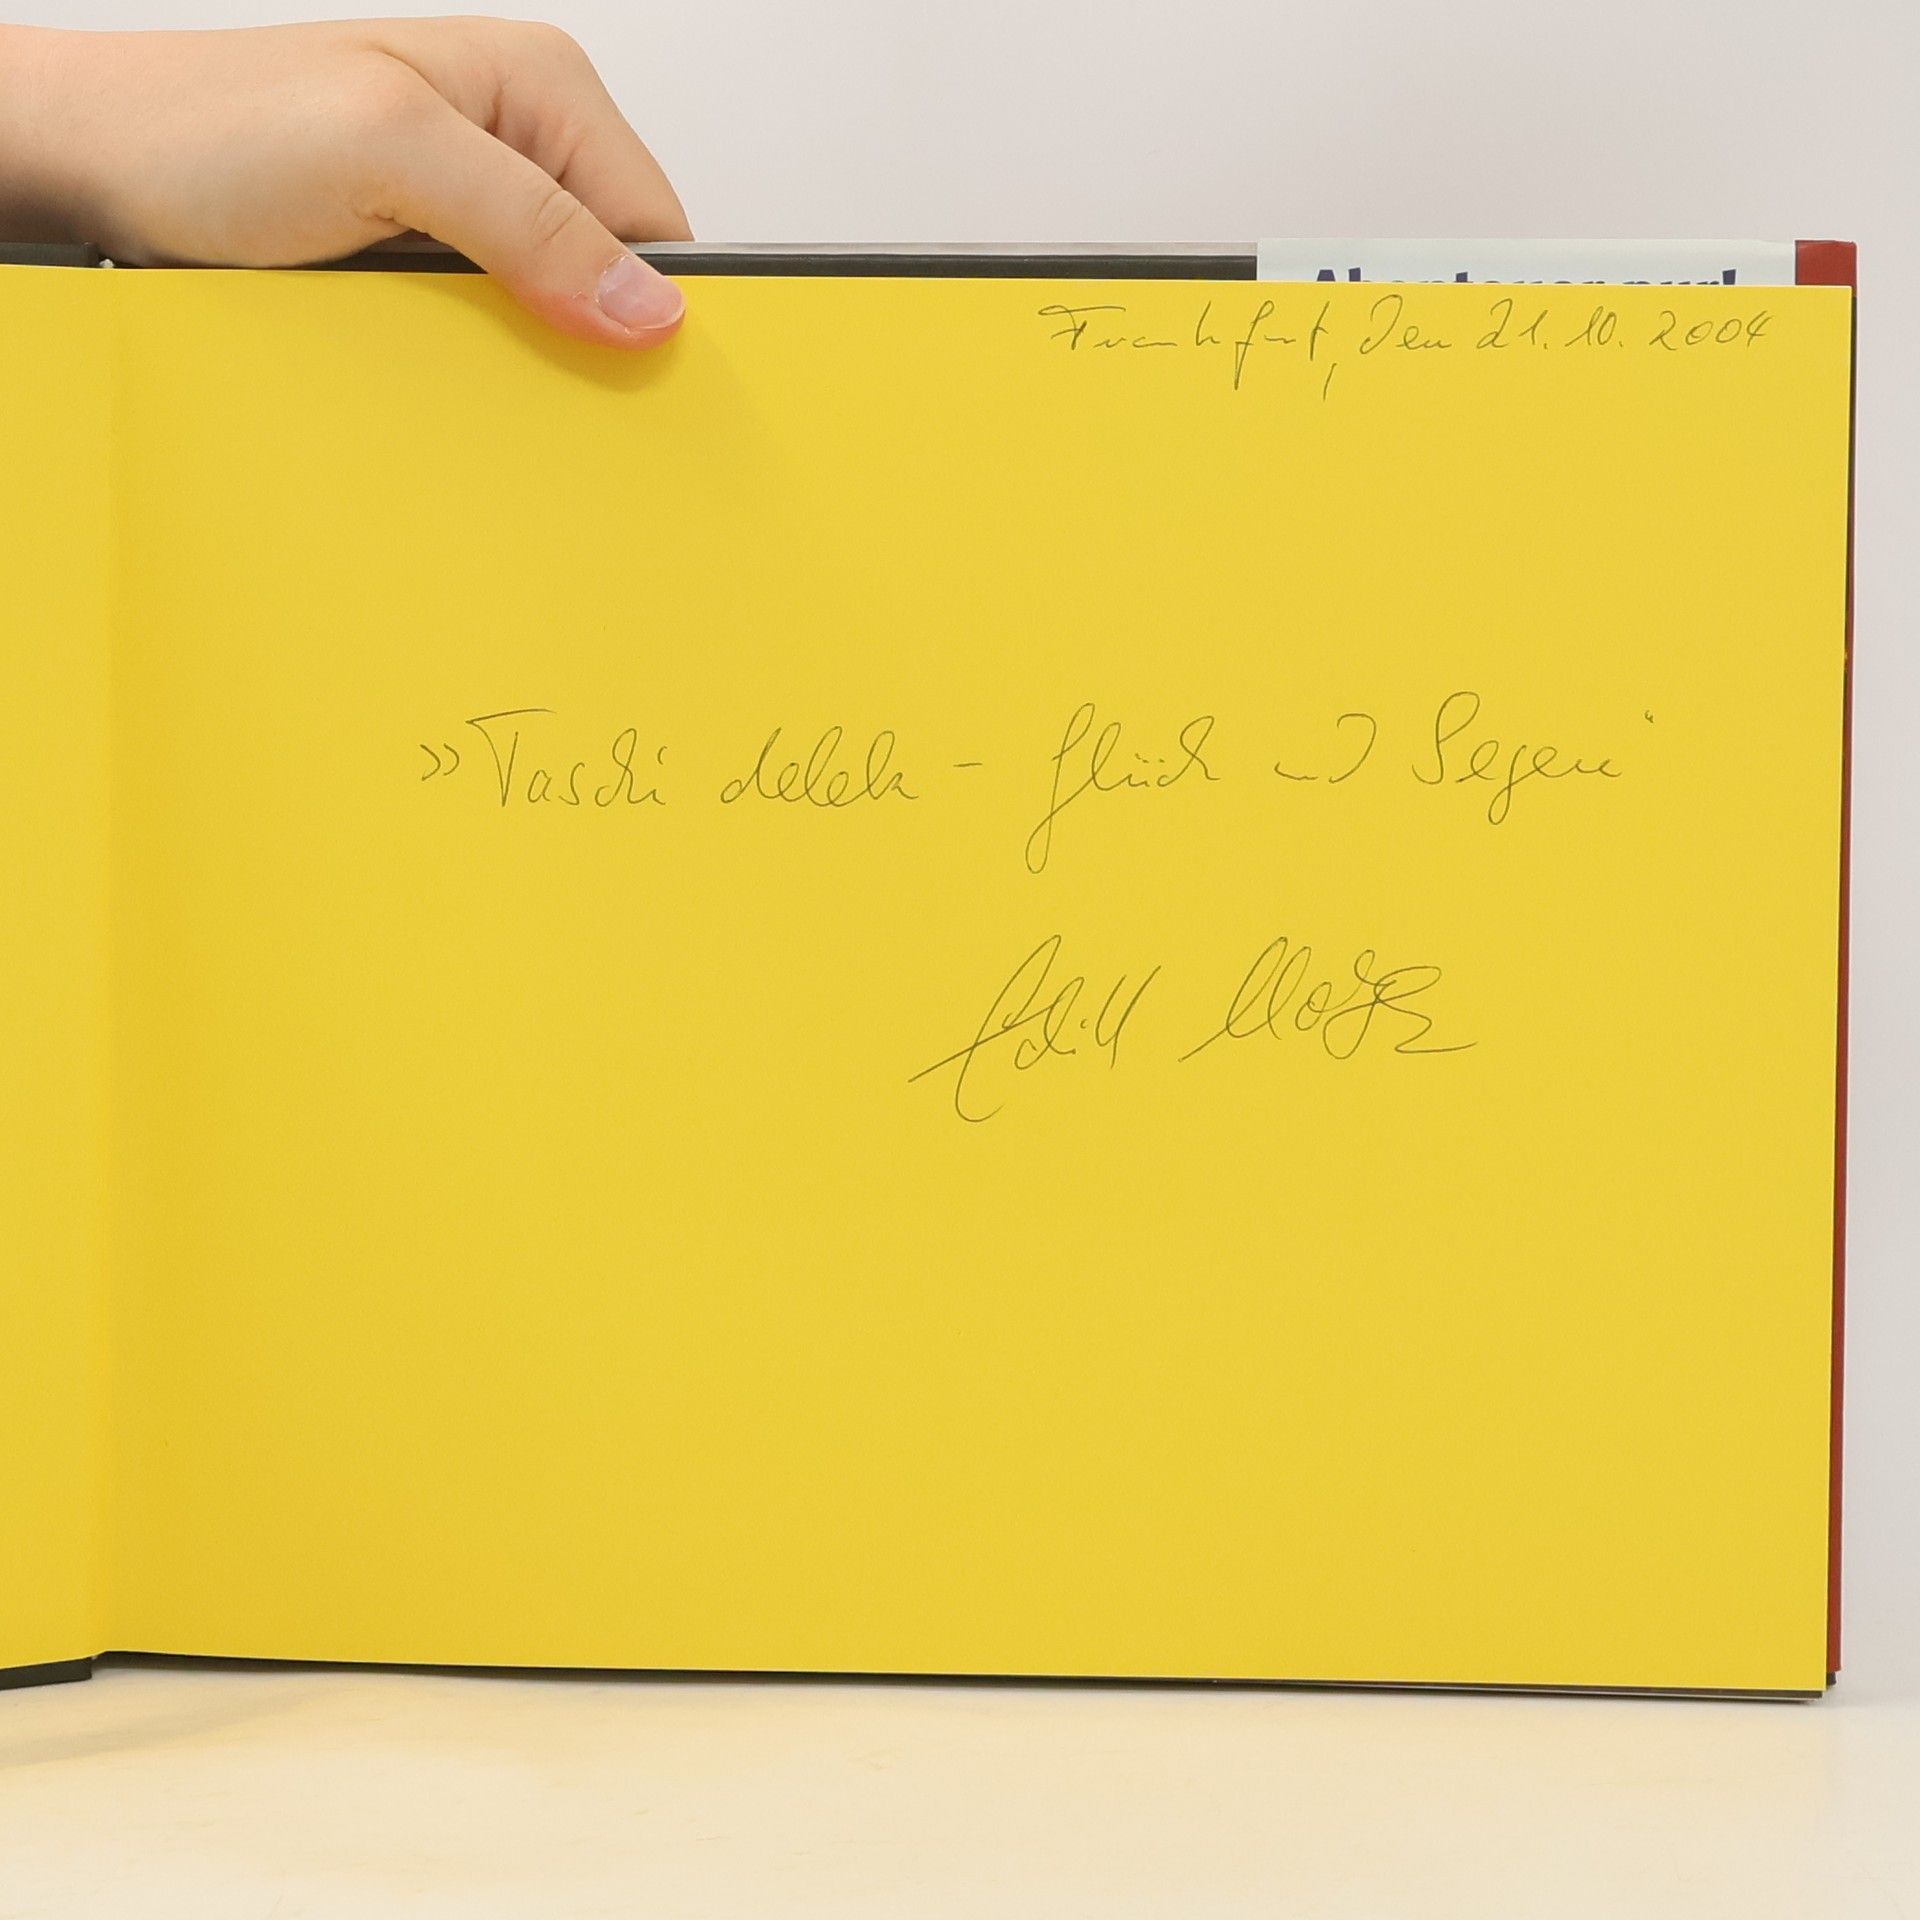 Abenteuer pur!
Frankfurt, den 21.10.2004
»Taschi delek – Glück und Segen“
Edith